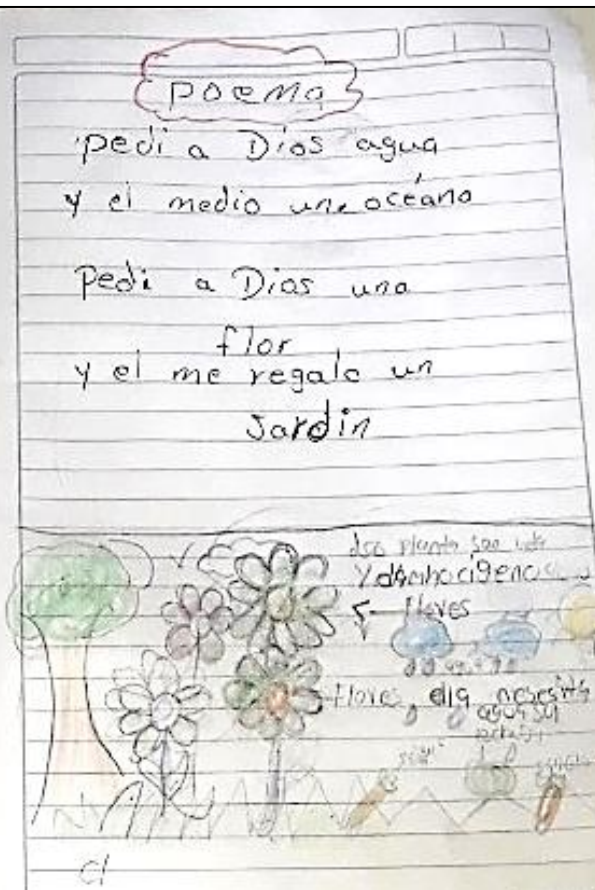 Poema
pedi a Dios agua
y el medio une océano
Pedi a Dios una
flor
y el me regale un
Jardin
planta son vida
y dan hocigeno
flores
flores, ella nesesita
agua sol